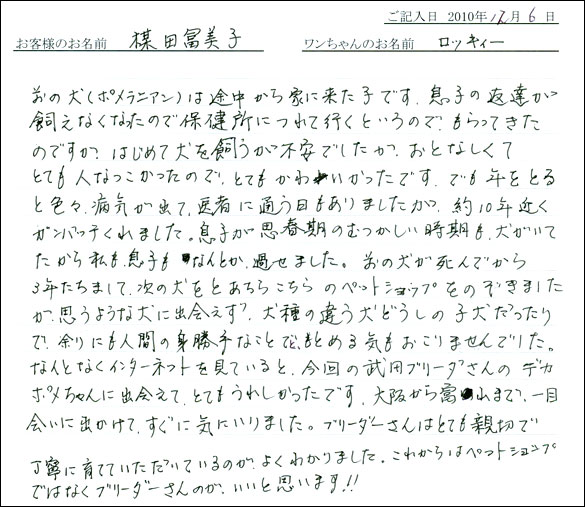 ご記入日 2010年12月6日
お客様のお名前 楳田冨美子 ワンちゃんのお名前 ロッキィー
前の犬(ポメラニアン)は途中から家に来た子です。息子の友達が
飼えなくなたので保健所につれて行くというので、もらってきた
のですが、はじめて犬を飼うが不安でしたが、おとなしくて
とても人なつこかったので、とてもかわいかったです。でも年をとる
と色々、病気が出て、医者に通う日もありましたが、約10年近く
ガンバッテくれました。息子が思春期のむつかしい時期も、犬がいて
たから私も、息子もなんとか、過せました。前の犬が死んでから
3年たちまして、次の犬をとあちらこちらのペットショップをのぞきました
が、思うような犬に出会えず、犬種の違う犬どうしの子犬だったり
で、余りにも人間の身勝手なことで、もとめる気もおこりませんでした。
なんとなくインターネットを見ていると、今回の武田ブリーダーさんのデカ
ポメちゃんに出会えて、とてもうれしかったです、大阪から富山まで、一目
会いに出かけて、すぐに気にいりました。ブリーダーさんはとても親切で
丁寧に育てていただいているのが、よくわかりました。これからはペットショップ
ではなくブリーダーさんのが、いいと思います!!